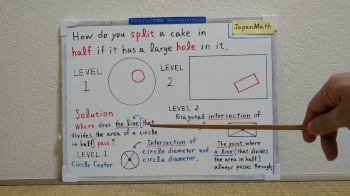 How do you split a cake in
half if it has a large hole in it.
JapanMath
LEVEL
1
LEVEL
2
Solution
Where does the line (that
divides the area of a circle
in half) pass?
LEVEL 1
Circle Center
Intersection of
circle diameter and
circle diameter.
LEVEL 2
Diagonal intersection of
The point where
a line (that divides
the area in half)
always passes through.